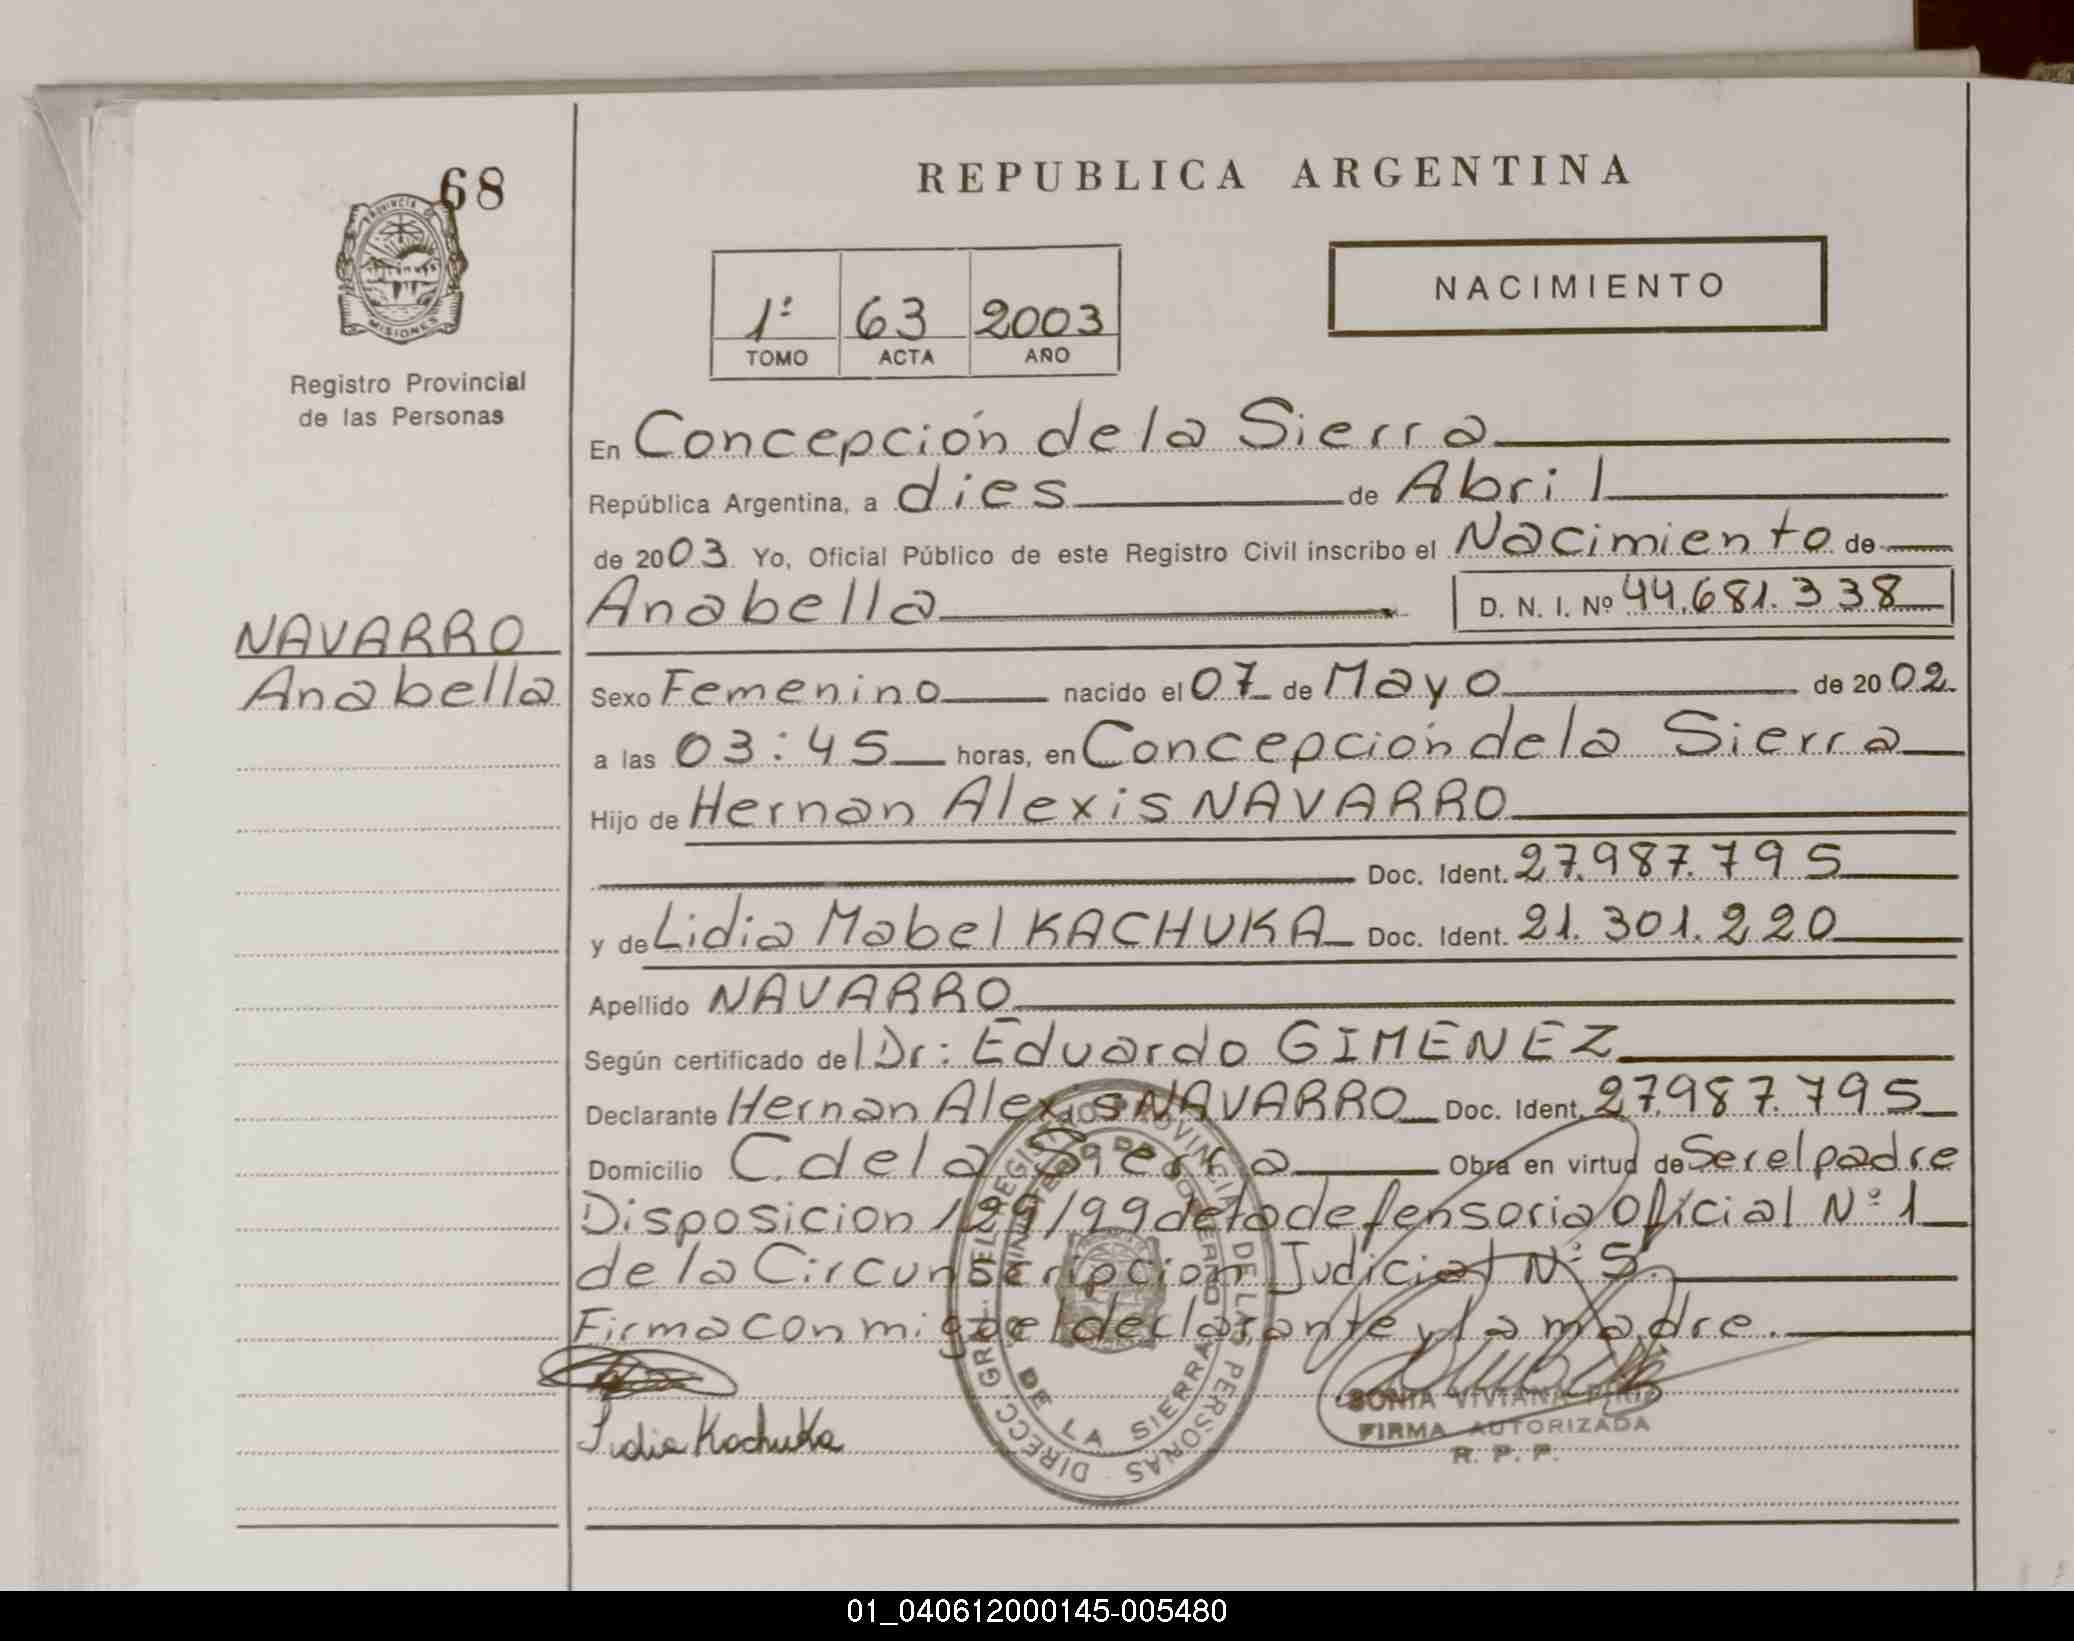 68
PROVINCIA DE
MISIONES
Registro Provincial
de las Personas
NAVARRO
Anabella
REPUBLICA ARGENTINA
1º 63 2003
TOMO ACTA AÑO
NACIMIENTO
En Concepción de la Sierra
República Argentina, a dies de Abril
de 2003 Yo, Oficial Público de este Registro Civil inscribo el Nacimiento de
Anabella D. N. I. Nº 44.681.338
Sexo Femenino nacido el 07 de Mayo de 2002
a las 03:45 horas, en Concepción de la Sierra
Hijo de Hernan Alexis NAVARRO
Doc. Ident. 27.987.795
y de Lidia Mabel KACHUKA Doc. Ident. 21.301.220
Apellido NAVARRO
Según certificado del Dr: Eduardo GIMENEZ
Declarante Hernan Alexis NAVARRO Doc. Ident. 27.987.795
Domicilio C. de la Sierra Obra en virtud de Ser el padre
Disposicion 129/99 de la defensoria Oficial Nº 1
de la Circunscripcion Judicial Nº 5.
Firma conmigo el declarante y la madre.
Lidia Kachuka
DIRECC. GRAL. DEL REGISTRO PROVINCIAL DE LAS PERSONAS
MINISTERIO DE GOBIERNO
DE LA SIERRA
SONIA VIVIANA
FIRMA AUTORIZADA
R. P. P.
01_040612000145-005480